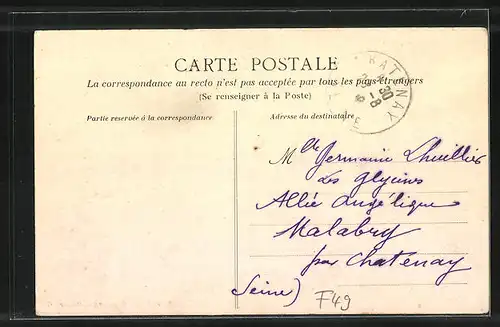 CARTE POSTALE
La correspondance au recto n'est pas acceptée par tous les pays étrangers
(Se renseigner à la Poste)
Partie reservée à la correspondance
Adresse du destinataire
Mlle Germaine Lhuillier
Les Glycines
Allée Angélique
Malabry
par Chatenay
Seine)
F49